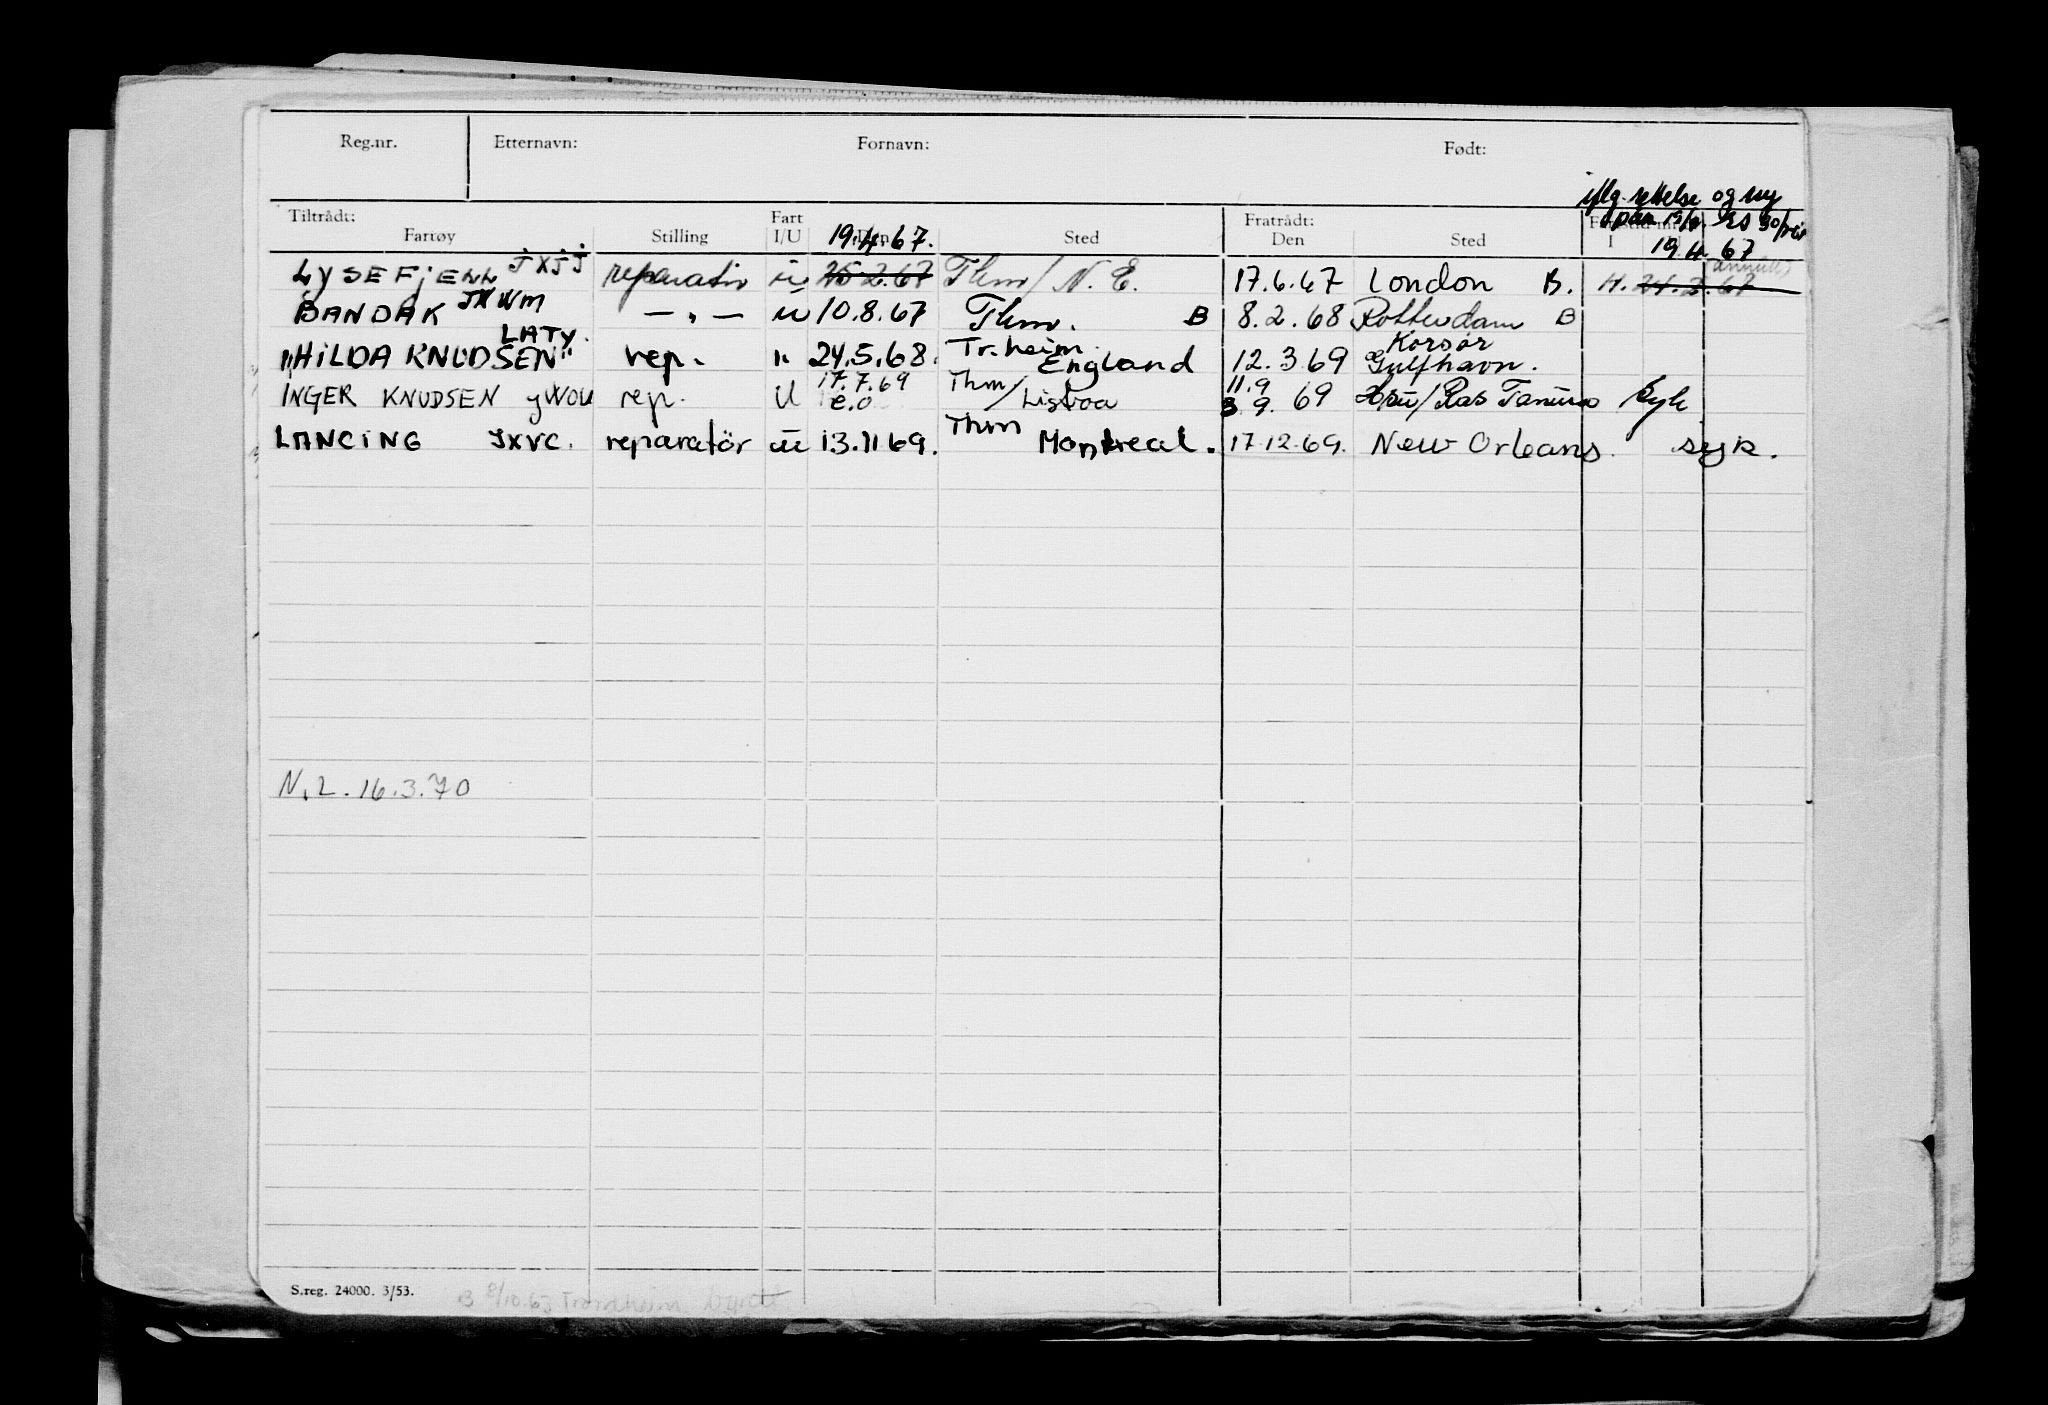 Reg.nr. Etternavn: Fornavn: Født:
iflg. rettelse og ny
Tiltrådt: Fart Fratrådt:
Fartøy Stilling I/U 19.4.67. Sted Den Sted I 19.4.67
LYSEFJELL JXJJ reparatör u 25.2.67 Thm/N.E. 17.6.67 London B. H. 24.2.67
BANDAK JXWM — " — u 10.8.67 Thm. B 8.2.68 Rotterdam B
LATY. Tr.heim. Korsør
"HILDA KNUDSEN" rep. " 24.5.68. England 12.3.69 Gulfhavn.
17.7.69 Thm/ 11.9
INGER KNUDSEN rep. U e.o Lisboa 3.9. 69 /Ras Tanura Syk
LANCING JXVC. reparatör u 13.11 69. Thm Montreal. 17.12.69. New Orleans. syk.
N.L. 16.3.70
S.reg. 24000. 3/53.
B 8/10.63 Trondheim